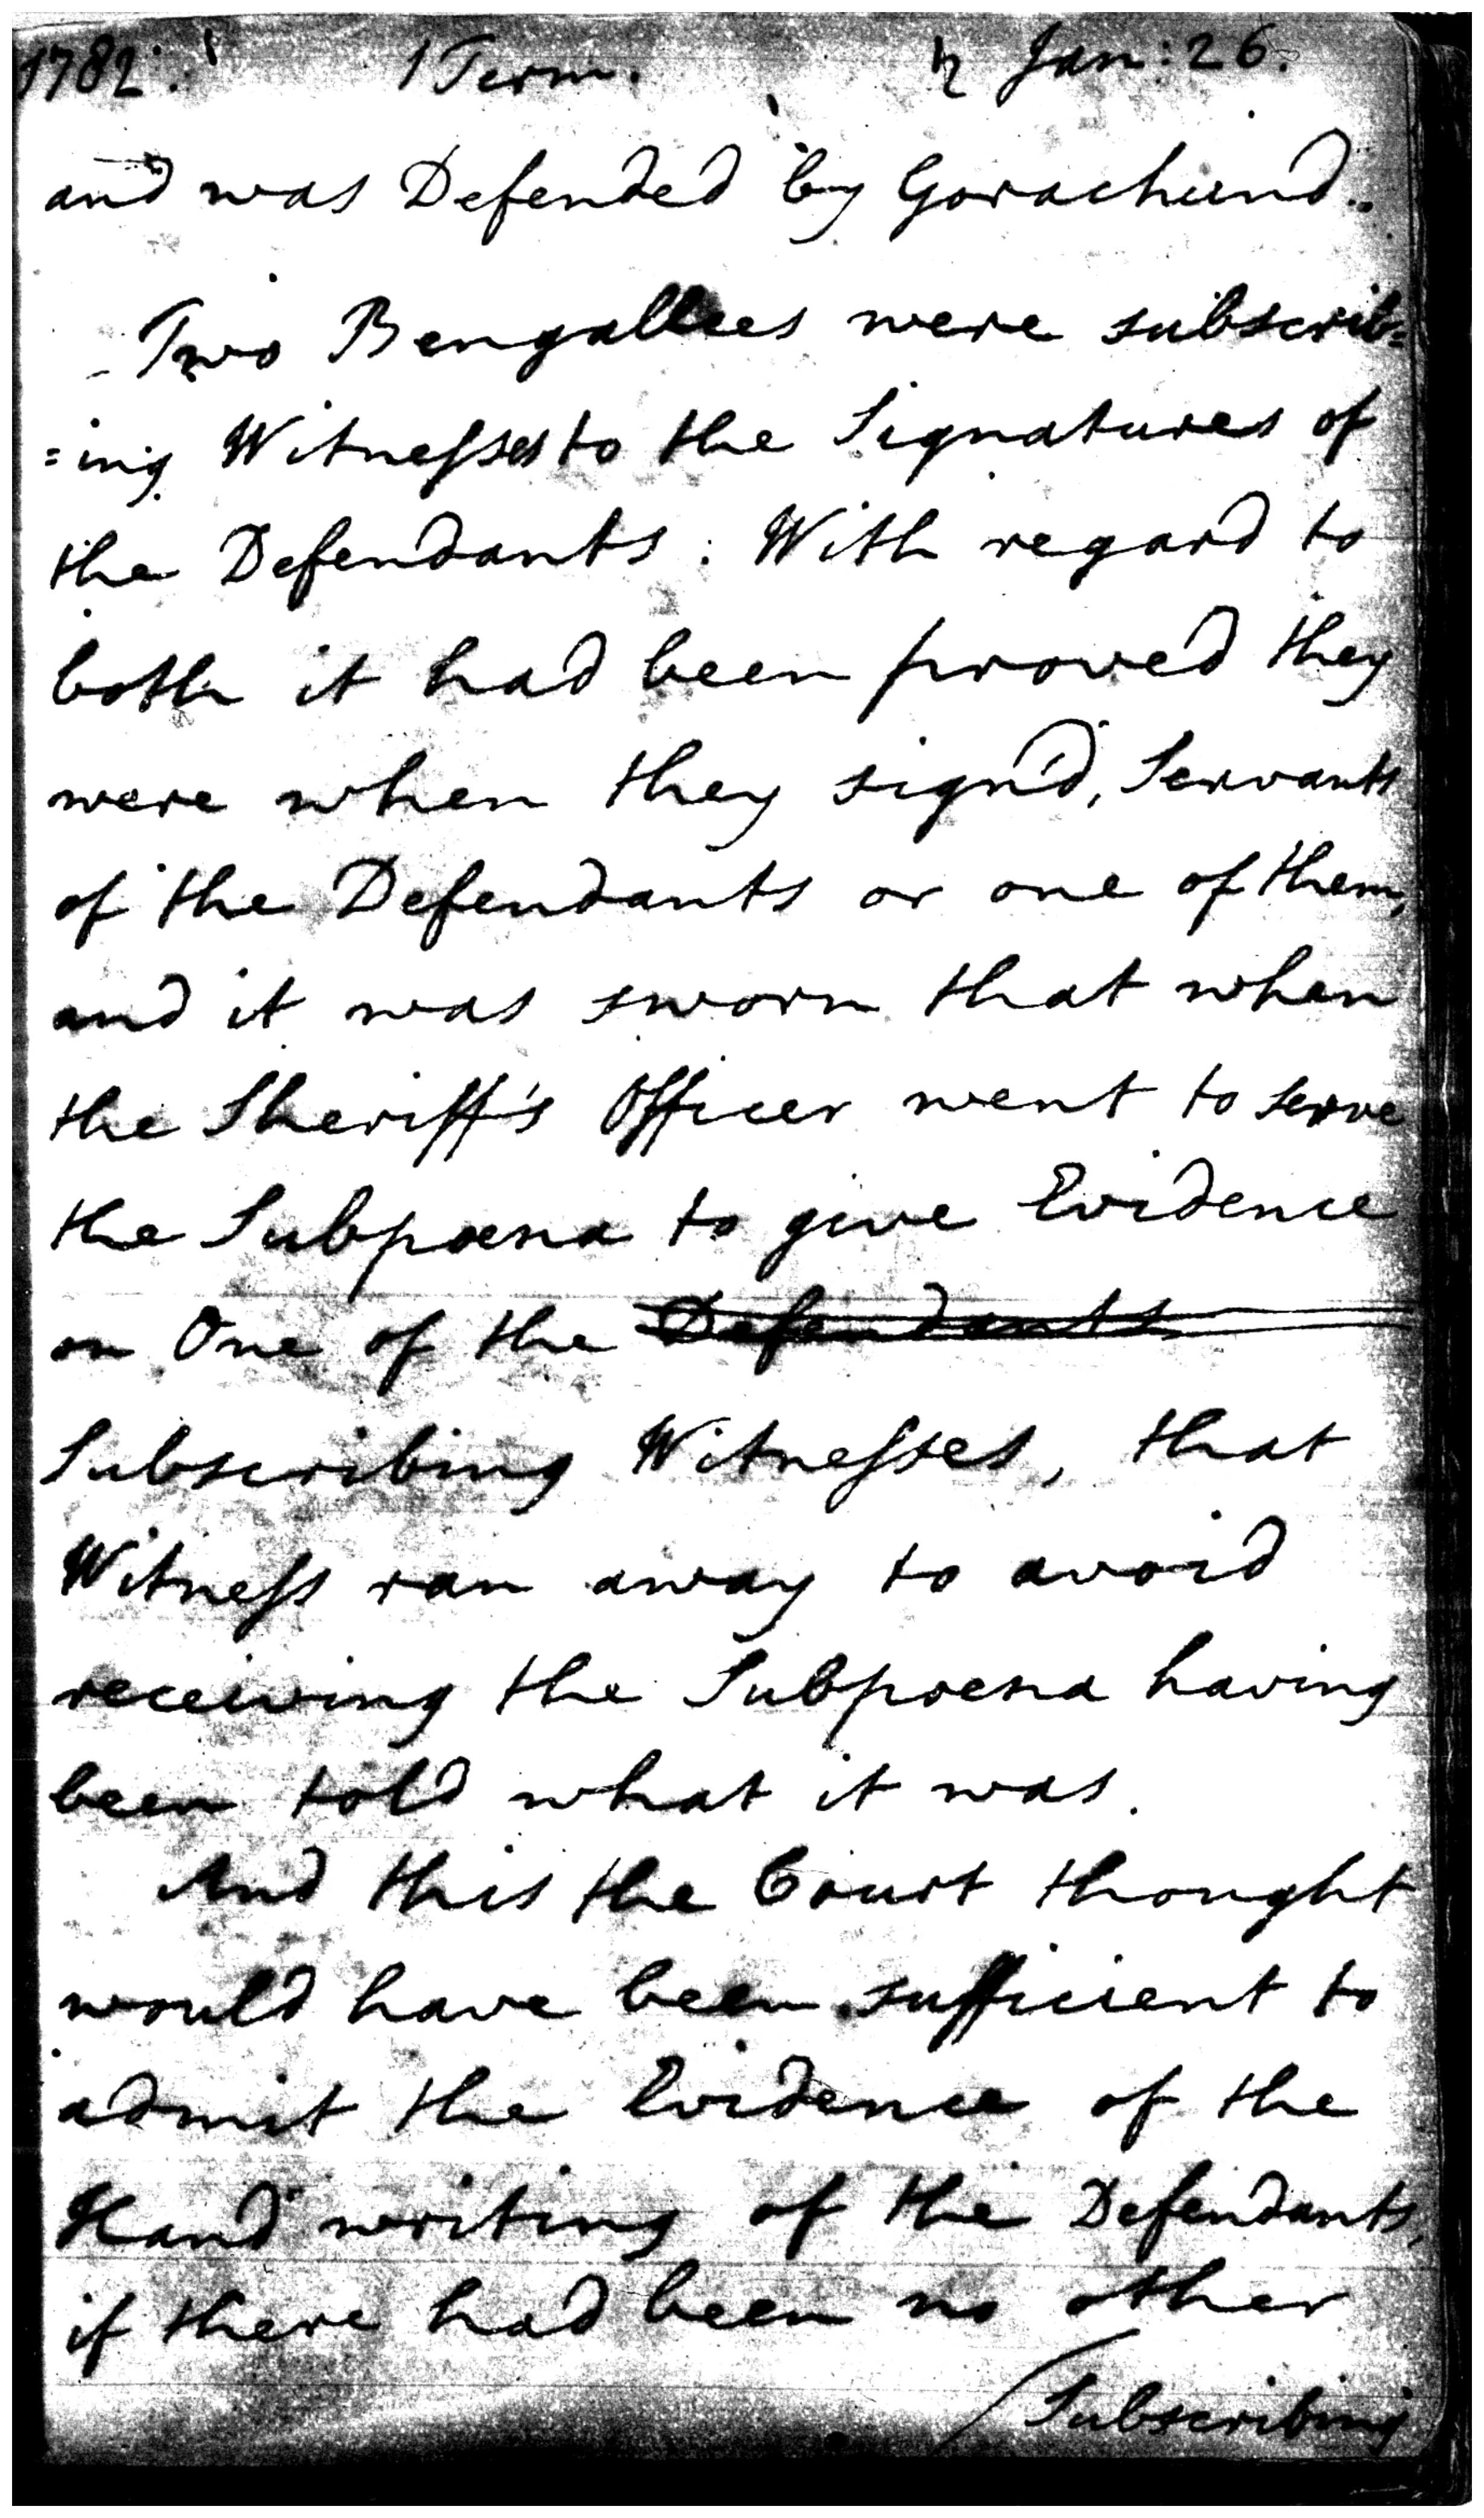 1782. 1 Term. ♄ Jan: 26.
and was Defended by Gorachund.
Two Bengallees were subscrib=
=ing Witnesses to the Signatures of
the Defendants: With regard to
both it had been proved they
were when they sign'd, Servants
of the Defendants or one of them,
and it was sworn that when
the Sheriff's Officer went to serve
the Subpoena to give Evidence
on One of the Defendants
Subscribing Witnesses, that
Witness ran away to avoid
receiving the Subpoena having
been told what it was.
And this the Court thought
would have been sufficient to
admit the Evidence of the
Hand writing of the Defendants,
if there had been no other
/Subscribing